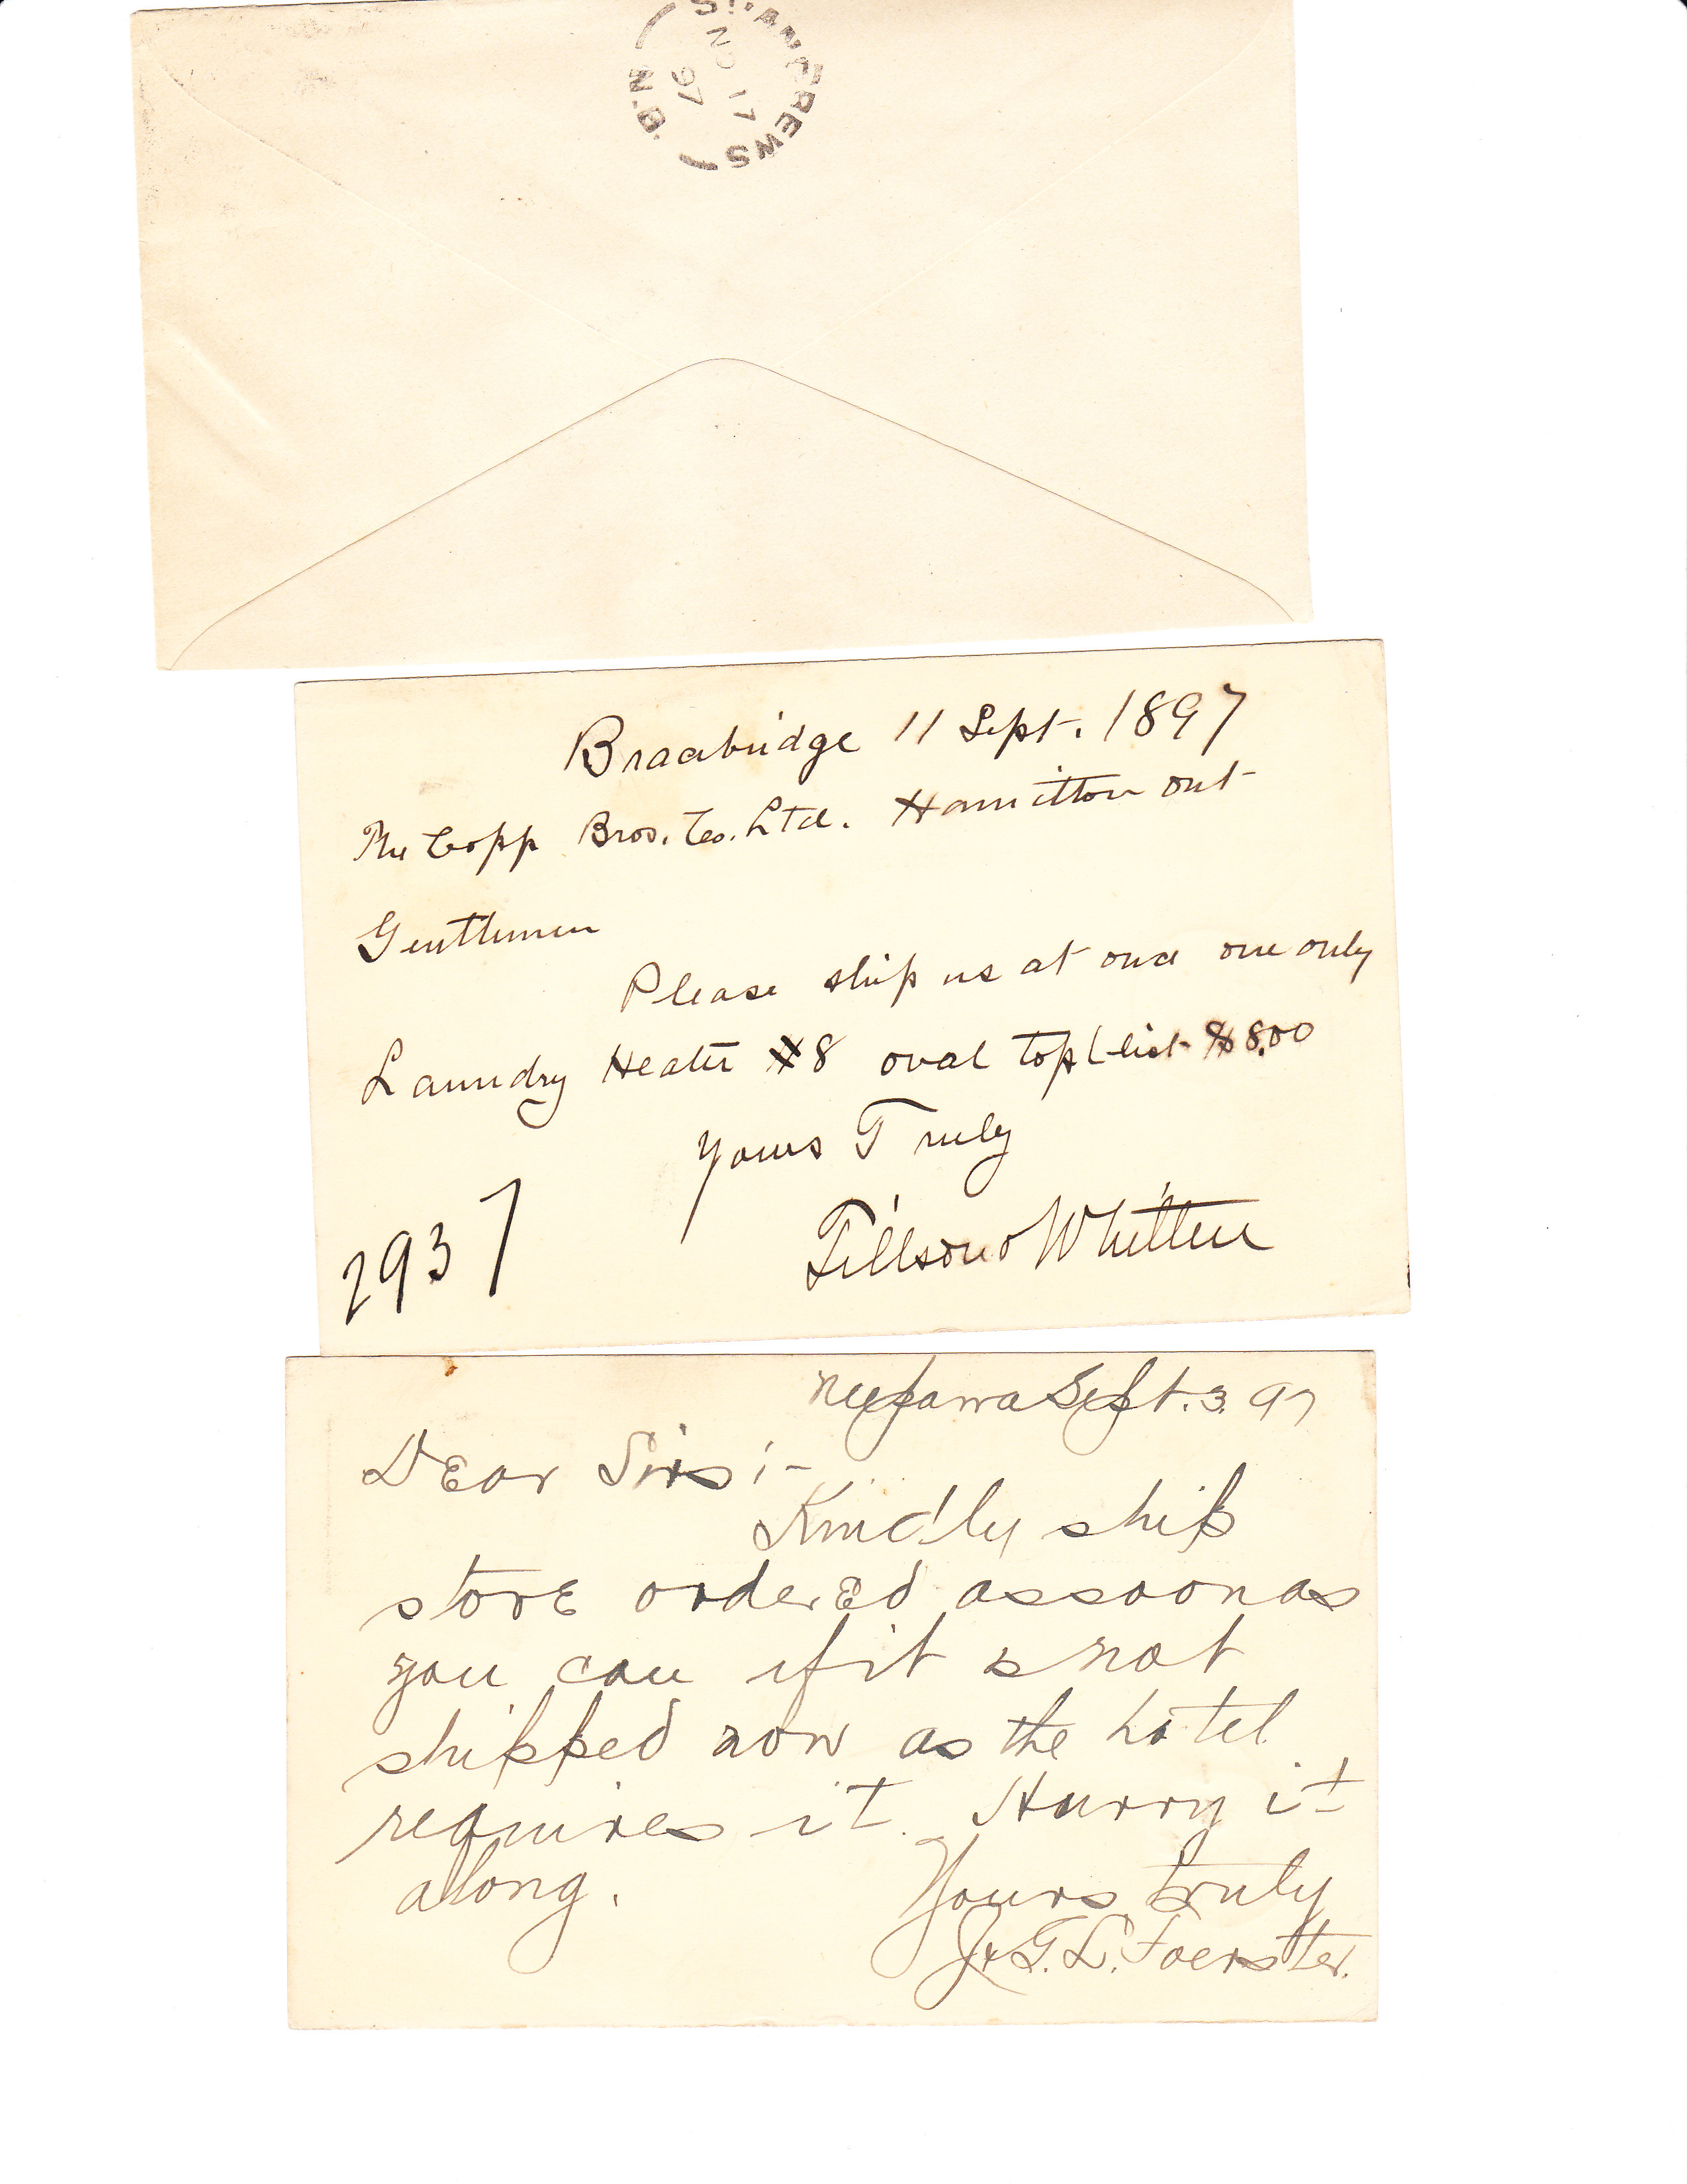 ST. ANDREWS
NO 17
97
N.B.
Bracebridge 11 Sept. 1897
The Copp Bros. Co. Ltd. Hamilton Ont
Gentlemen
Please ship us at once one only
Laundry Heater #8 oval top list $8.00
Yours Truly
2937
Neepawa Sept. 3. 97
Dear Sirs:-
Kindly ship
stove ordered as soon as
you can if it is not
shipped now as the hotel
requires it. Hurry it
along.
Yours truly
G. L. Foerster.